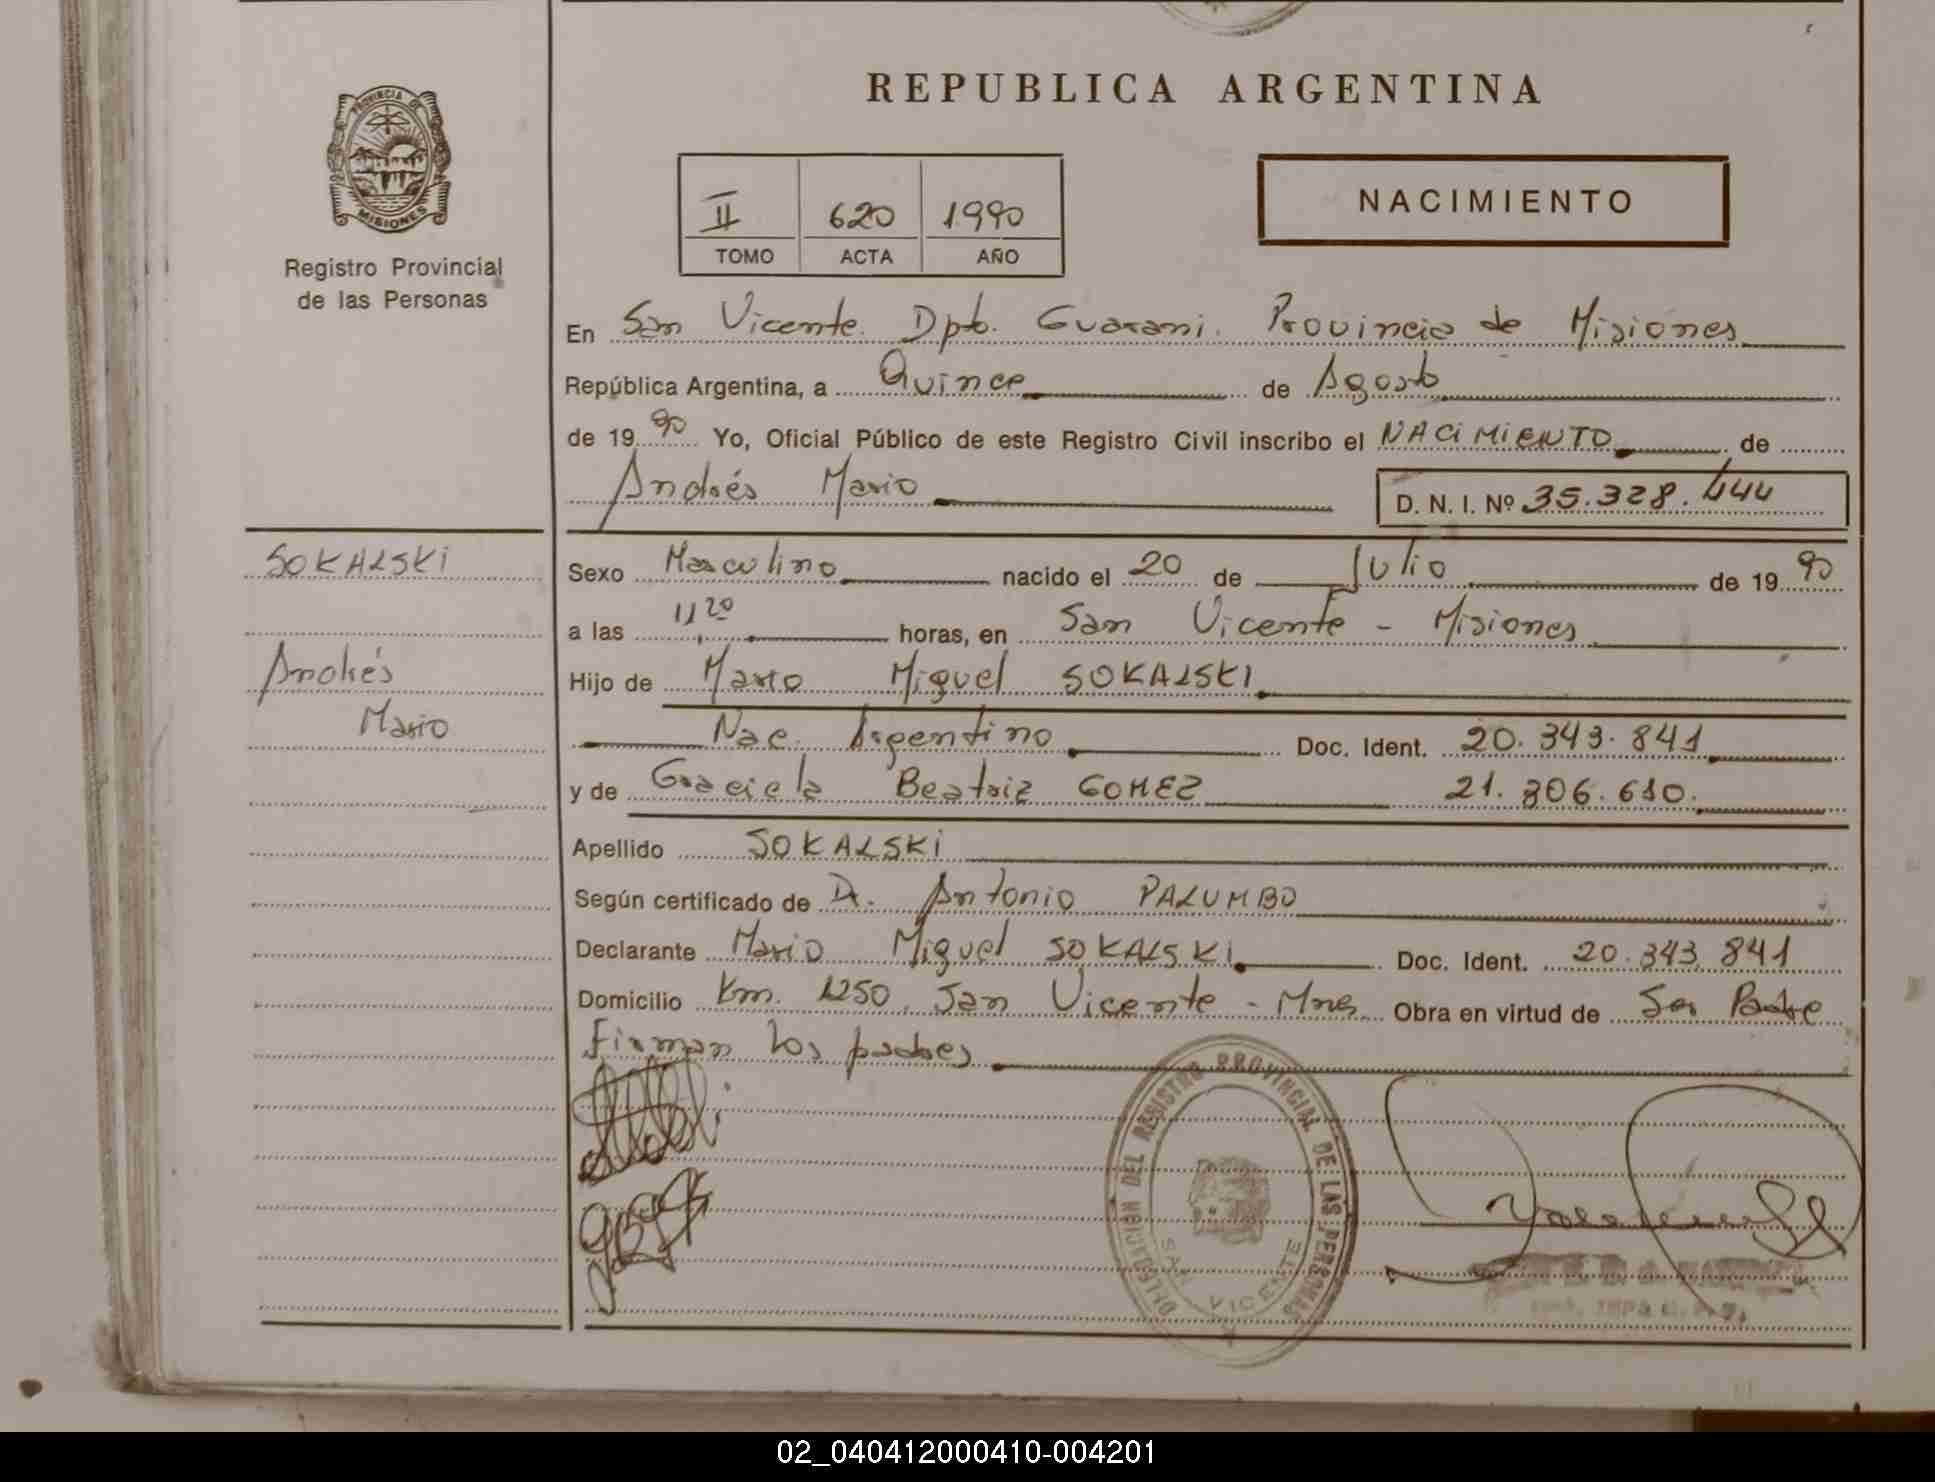 REPUBLICA ARGENTINA
PROVINCIA DE
MISIONES
Registro Provincial
de las Personas
II 620 1990
TOMO ACTA AÑO
NACIMIENTO
En San Vicente. Dpto. Guarani. Provincia de Misiones
República Argentina, a Quince de Agosto
de 1990 Yo, Oficial Público de este Registro Civil inscribo el NACIMIENTO de
Andrés Mario D. N. I. Nº 35.328.444
SOKALSKI
Andrés
Mario
Sexo Masculino nacido el 20 de Julio de 1990
a las 11,20 horas, en San Vicente - Misiones
Hijo de Mario Miguel SOKALSKI
Nac. Argentino Doc. Ident. 20.343.841
y de Graciela Beatriz GOMEZ 21.306.610.
Apellido SOKALSKI
Según certificado de Dr. Antonio PALUMBO
Declarante Mario Miguel SOKALSKI Doc. Ident. 20.343.841
Domicilio Km. 1250, San Vicente - Mnes Obra en virtud de Ser Padre
Firman los padres
DELEGACION DEL REGISTRO PROVINCIAL DE LAS PERSONAS
SAN VICENTE
02_040412000410-004201